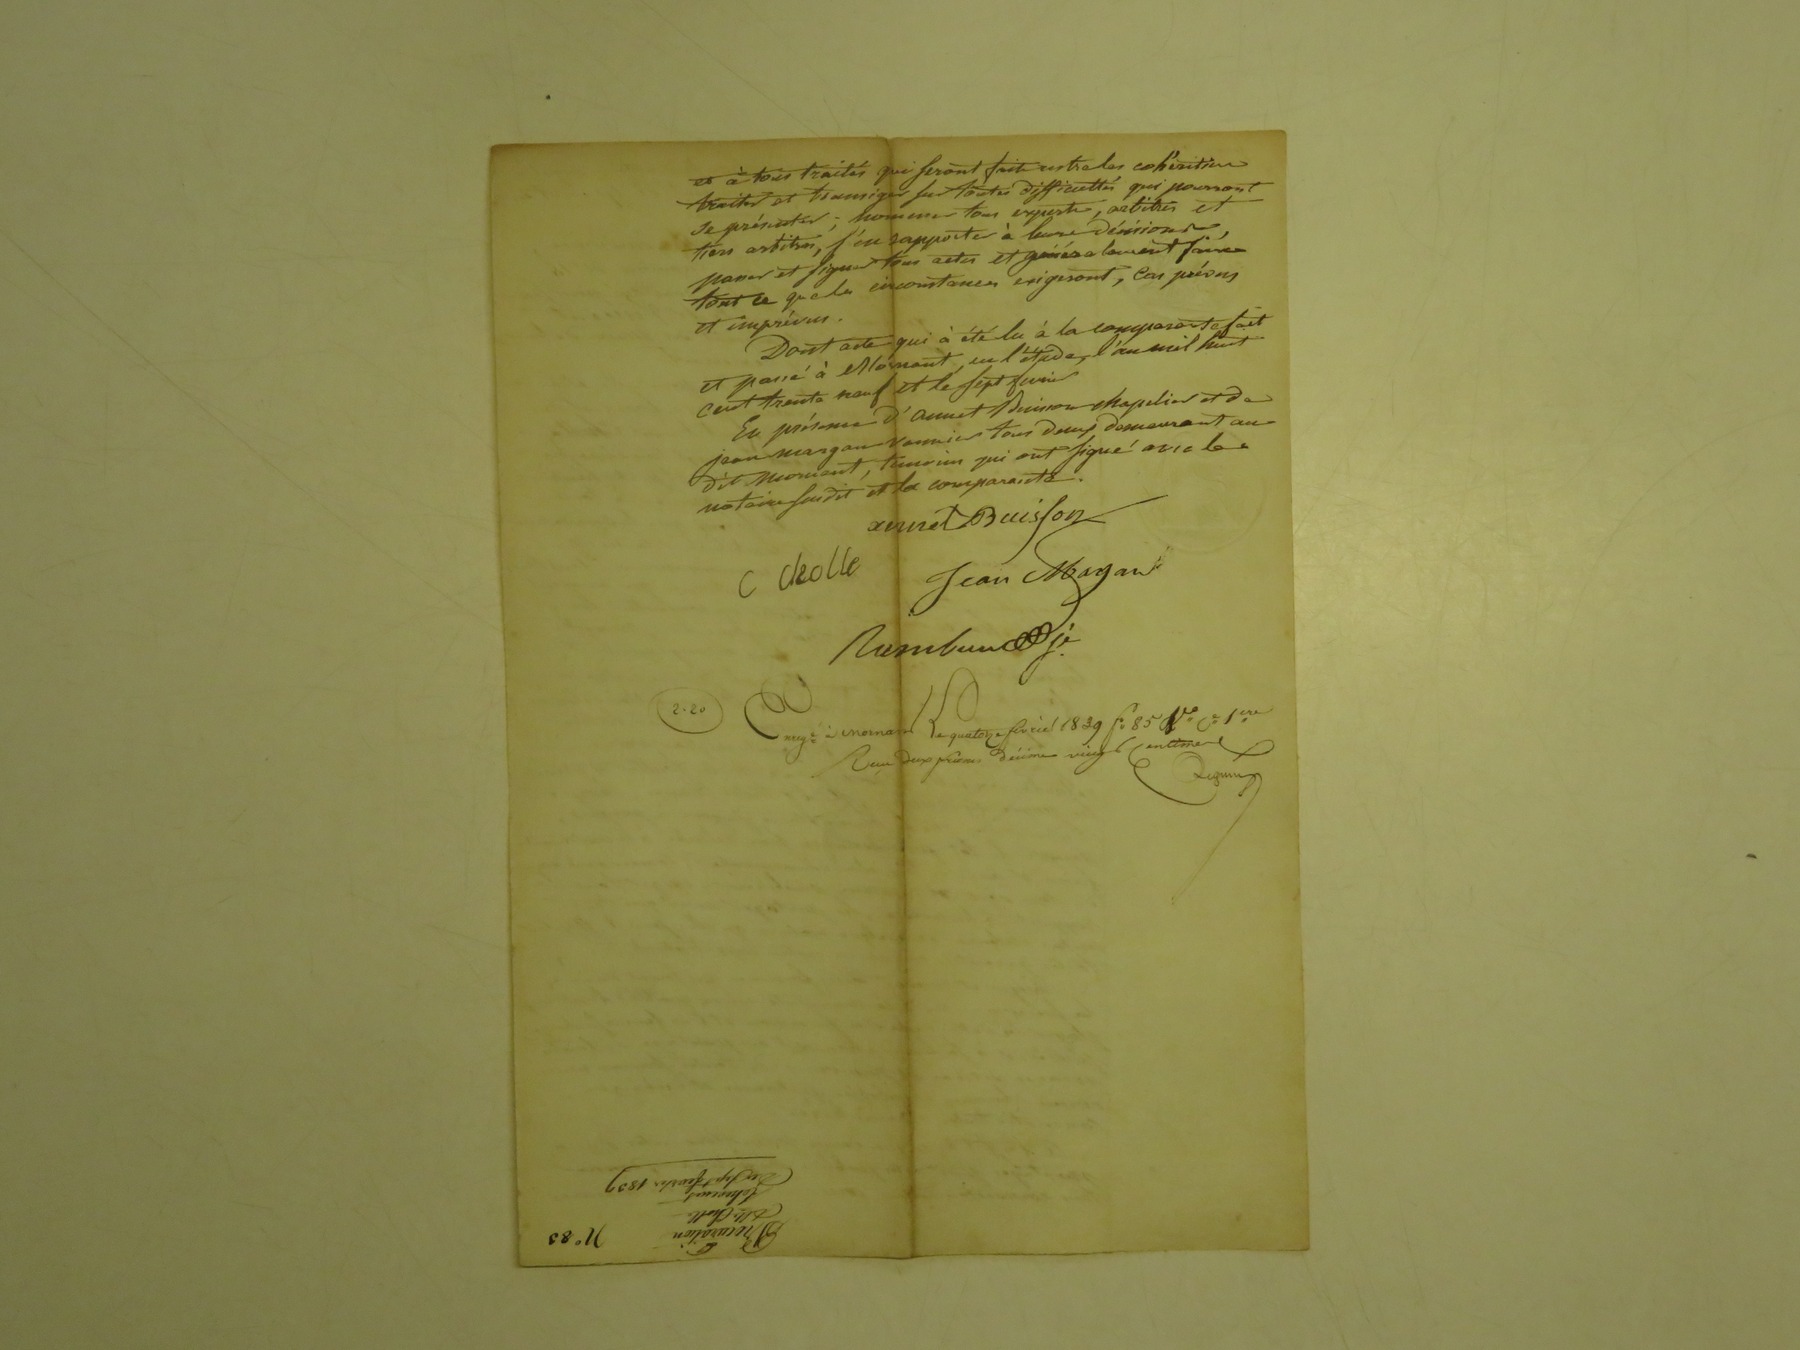 et à tous traités qui seront faits entre les cohéritiers
traiter et transiger sur toutes difficultés qui pourront
se présenter ; nommer tous experts, arbitres et
tiers arbitres, s'en rapporter à leurs décisions,
passer et signer tous actes et généralement faire
tout ce que les circonstances exigeront, cas prévus
et imprévus.
Dont acte qui à été lu à la comparante fait
et passé à Mornant, en l'étude, l'an mil huit
cent trente neuf et le sept fevrier
En présence d'annet Buisson chapelier et de
jean margan vannier tous deux demeurant au
dit Mornant, temoins qui ont signé avec le
notaire susdit et la comparante.
annet Buisson
C Cholle
Jean Magan
2-20
à Mornant le quatorze fevrier 1839 f° 85 V° C° 1ere
Reçu deux francs décime vingt Centimes
N° 83
Procuration
Cholle
Du sept fevrier 1839